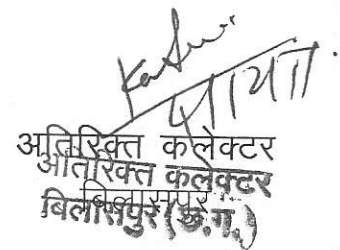 अतिरिक्त कलेक्टर
अतिरिक्त कलेक्टर
बिलासपुर
बिलासपुर (छ.ग.)